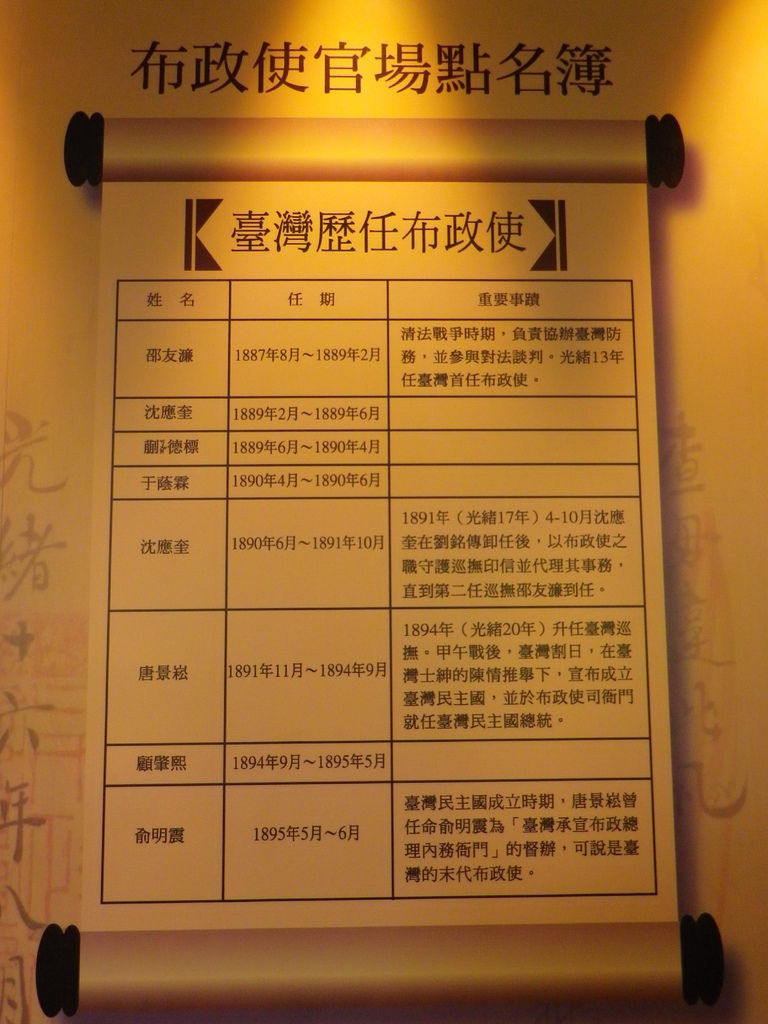 布政使官場點名簿
臺灣歷任布政使
姓 名 任 期 重要事蹟
邵友濂 1887年8月～1889年2月 清法戰爭時期，負責協辦臺灣防
務，並參與對法談判。光緒13年
任臺灣首任布政使。
沈應奎 1889年2月～1889年6月
蒯德標 1889年6月～1890年4月
于蔭霖 1890年4月～1890年6月
沈應奎 1890年6月～1891年10月 1891年（光緒17年）4-10月沈應
奎在劉銘傳卸任後，以布政使之
職守護巡撫印信並代理其事務，
直到第二任巡撫邵友濂到任。
唐景崧 1891年11月～1894年9月 1894年（光緒20年）升任臺灣巡
撫。甲午戰後，臺灣割日，在臺
灣士紳的陳情推舉下，宣布成立
臺灣民主國，並於布政使司衙門
就任臺灣民主國總統。
顧肇熙 1894年9月～1895年5月
俞明震 1895年5月～6月 臺灣民主國成立時期，唐景崧曾
任命俞明震為「臺灣承宣布政總
理內務衙門」的督辦，可說是臺
灣的末代布政使。
光緒十六年八月